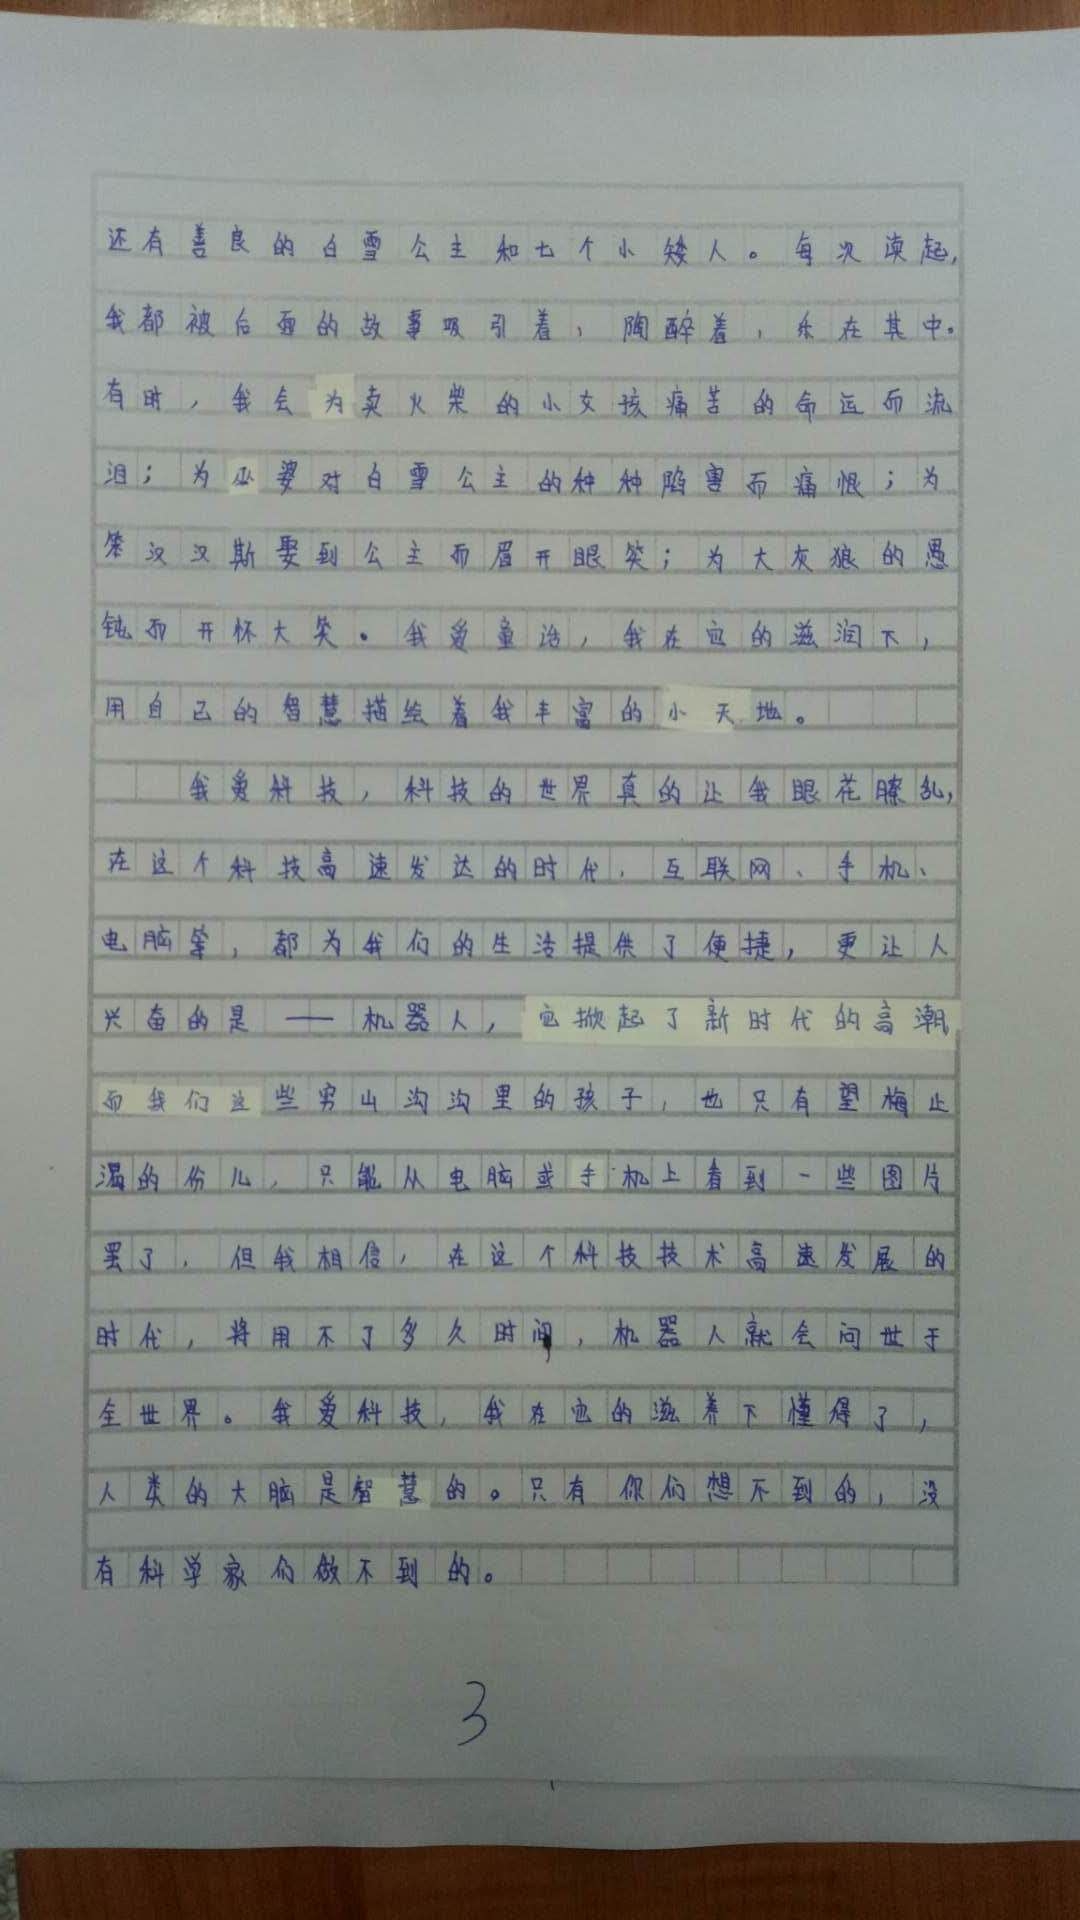 还有善良的白雪公主和七个小矮人。每次读起,
我都被后面的故事吸引着,陶醉着,乐在其中。
有时,我会为卖火柴的小女孩痛苦的命运而流
泪;为巫婆对白雪公主的种种陷害而痛恨;为
笨汉汉斯娶到公主而眉开眼笑;为大灰狼的愚
钝而开怀大笑。我爱童话,我在它的滋润下,
用自己的智慧描绘着我丰富的小天地。
我爱科技,科技的世界真的让我眼花瞭乱,
在这个科技高速发达的时代,互联网、手机、
电脑等,都为我们的生活提供了便捷,更让人
兴奋的是——机器人,它掀起了新时代的高潮
而我们这些穷山沟沟里的孩子,也只有望梅止
渴的份儿,只能从电脑或手机上看到一些图片
罢了,但我相信,在这个科技技术高速发展的
时代,将用不了多久时间,机器人就会问世于
全世界。我爱科技,我在它的滋养下懂得了,
人类的大脑是智慧的。只有你们想不到的,没
有科学家们做不到的。
3